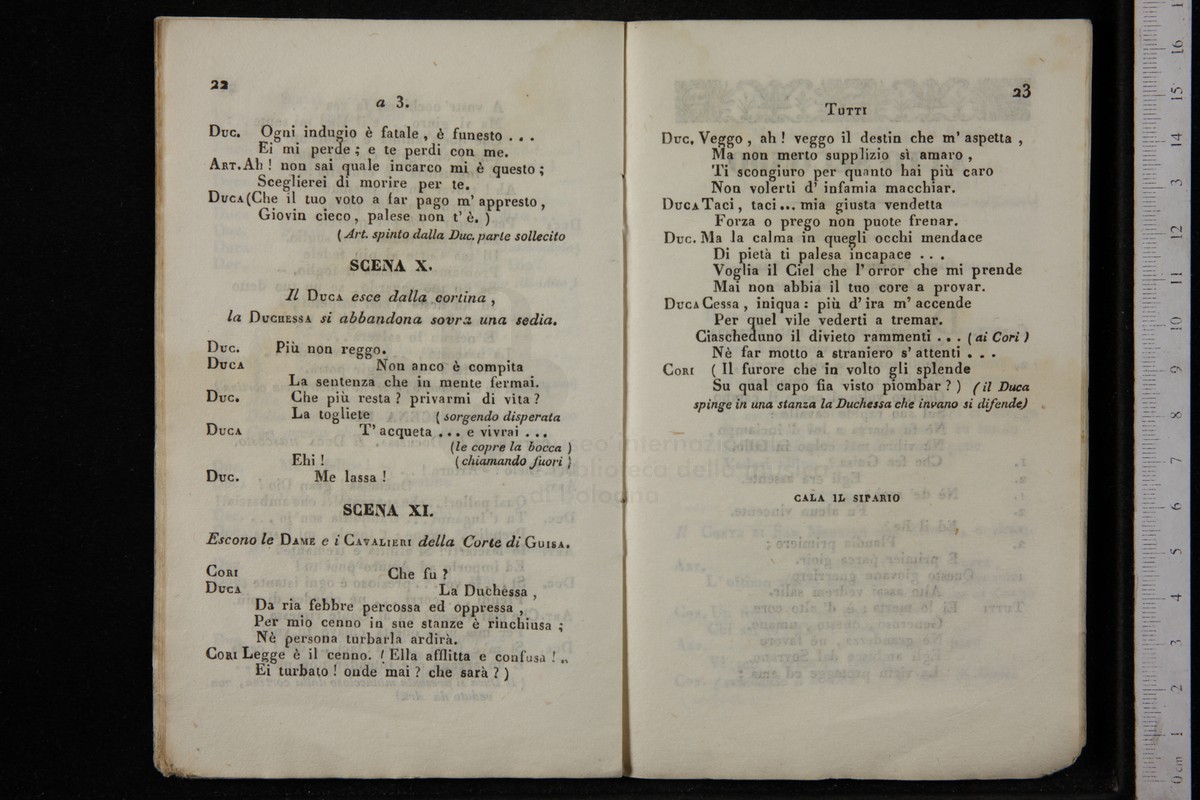 22
a 3.
Duc. Ogni indugio è fatale , è funesto . . .
Ei mi perde ; e te perdi con me.
Art. Ah ! non sai quale incarco mi è questo ;
Sceglierei di morire per te.
Duca (Che il tuo voto a far pago m' appresto ,
Giovin cieco , palese non t' è. )
( Art. spinto dalla Duc. parte sollecito
SCENA X.
Il Duca esce dalla cortina ,
la Duchessa si abbandona sovra una sedia.
Duc. Più non reggo.
Duca Non anco è compita
La sentenza che in mente fermai.
Duc. Che più resta ? privarmi di vita ?
La togliete ( sorgendo disperata
Duca T' acqueta . . . e vivrai . . .
(le copre la bocca )
Ehi ! ( chiamando fuori )
Duc. Me lassa !
SCENA XI.
Escono le Dame e i Cavalieri della Corte di Guisa.
Cori Che fu ?
Duca La Duchessa ,
Da ria febbre percossa ed oppressa ,
Per mio cenno in sue stanze è rinchiusa ;
Nè persona turbarla ardirà.
Cori Legge è il cenno. ( Ella afflitta e confusa ! ..
Ei turbato ! onde mai ? che sarà ? )
23
Tutti
Duc. Veggo , ah ! veggo il destin che m' aspetta ,
Ma non merto supplizio sì amaro ,
Ti scongiuro per quanto hai più caro
Non volerti d' infamia macchiar.
Duca Taci , taci ... mia giusta vendetta
Forza o prego non puote frenar.
Duc. Ma la calma in quegli occhi mendace
Di pietà ti palesa incapace . . .
Voglia il Ciel che l' orror che mi prende
Mai non abbia il tuo core a provar.
Duca Cessa , iniqua : più d' ira m' accende
Per quel vile vederti a tremar.
Ciascheduno il divieto rammenti . . . ( ai Cori )
Nè far motto a straniero s' attenti . . .
Cori ( Il furore che in volto gli splende
Su qual capo fia visto piombar ? ) ( il Duca
spinge in una stanza la Duchessa che invano si difende)
CALA IL SIPARIO
museo internazionale
e biblioteca della musica
di bologna
0 cm 1 2 3 4 5 6 7 8 9 10 11 12 13 14 15 16